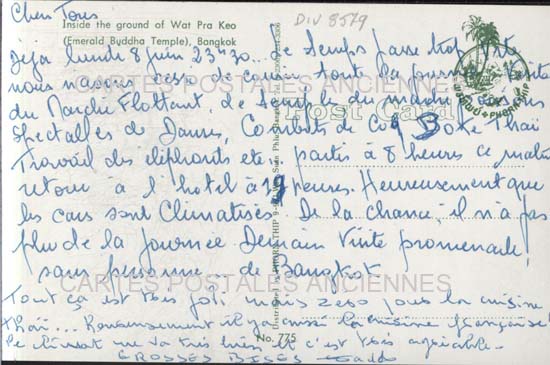 Chers Tous
Inside the ground of Wat Pra Keo
(Emerald Buddha Temple), Bangkok
DIV 8579
Post Card
Déjà lundi 8 juin 23H30... le temps passe trop vite
nous n'avons cessé de courir toute la journée. Visite
du Marché Flottant, de temple du matin
spectacles de Danses, Combats de Coq Boxe Thaï
Travail des éléphants etc.. partis à 8 heures ce matin
retour à l'hotel à 19 heures. Heureusement que
les cars sont Climatisés. De la chance, il n'a pas
plu de la journée Demain visite promenade
sans personne, de Bangkok
Tout ça est très joli mais zéro pour la cuisine
thaï... Heureusement il y a aussi la cuisine française!
le climat me va très bien et c'est très agréable.
GROSSES BISES
No. 775
CARTES POSTALES ANCIENNES
CARTES POSTALES ANCIENNES